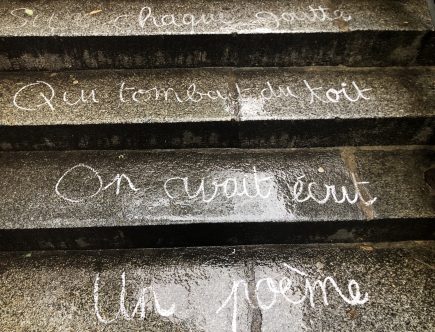 Si sur chaque goutte
Qui tombait du toit
On avait écrit
Un poème